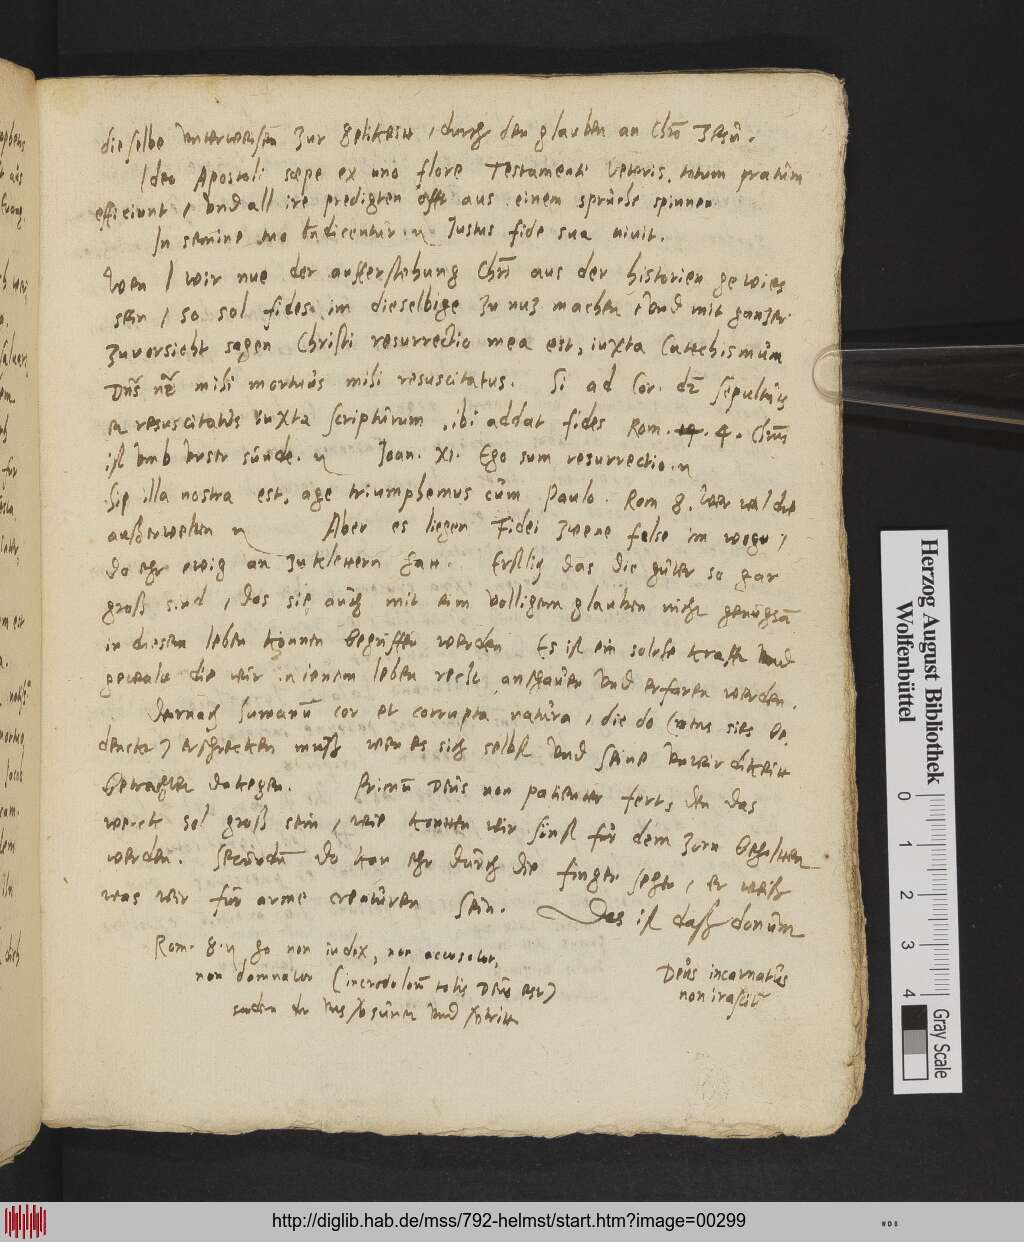 die selbe unterweisen zur selikeitt, durch den glauben an Chrm Jesu.
Ideo Apostoli saepe ex uno flore Testamenti Veteris, totum pratum
efficiunt, und all ire predigten offt aus einem spruche spinnen
In semine tuo bndicentur. Justus fide sua uiuit.
Wen wir nue der aufferstehung Chri aus der historien gewies
sein, so sol fides im dieselbige zu nuz machen und mit ganzer
zuvorsicht sagen Christi resurrectio mea est, iuxta Catechismum
Dns mihi mortuus mihi resuscitatus. Si ad Cor. sepultus
resuscitatus iuxta scripturam, ibi addat fides Rom. 4. Chrus
ist umb unser sunde. Joan. XI. Ego sum resurrectio.
illa nostra est, age triumphemus cum Paulo. Rom 8. wer wil die
außerwelten Aber es liegen Fidei zwene felse im wege,
do ehr ewig an zu klettern hatt. Erstlich das die guter so gar
groß sind, das sie auch mit eim volligem glauben nicht genugsa
in diesem leben konnen begriffen werden Es ist ein solche krafft und
gewalt die wir in ienem leben recht anschauen und erfaren werden.
Darnach humanu cor et corrupta natura, die do be
dencket, erschrecken muß wen es sich selbst und seine unwirdikeitt
betrachtet dokegen. Primu Deus non patienter fert, den das
werck sol groß sein, wie konnen wir sunst fur dem zorn behalten
werden. Secundu do kan ehr durch die finger sehen, er weiß
was wir fur arme creaturen sein. Das ist daß donum
Rom. 8. non iudex, non accusator,
non damnator (increduloru talis Deus est)
sondern der uns sunet und
Deus incarnatus
non irascit
Herzog August Bibliothek
Wolfenbüttel
0 1 2 3 4
Gray Scale
http://diglib.hab.de/mss/792-helmst/start.htm?image=00299